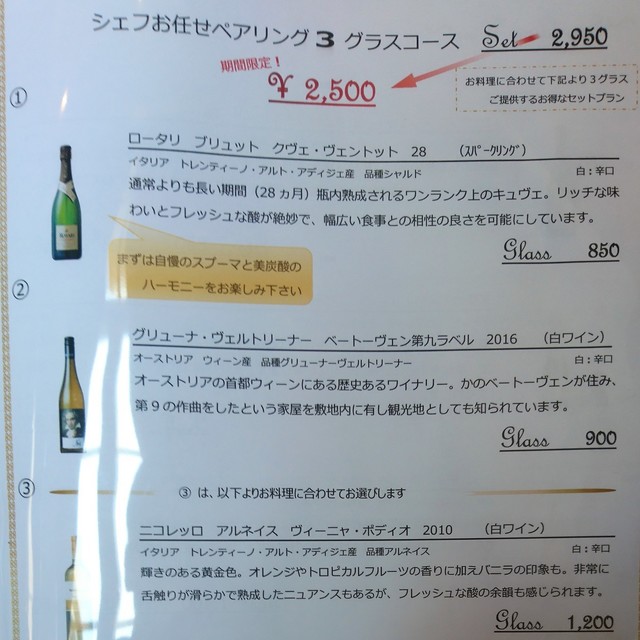 シェフお任せペアリング３ グラスコース Set 2,950
期間限定！
¥ 2,500
お料理に合わせて下記より３グラス
ご提供するお得なセットプラン
①
ロータリ ブリュット クヴェ・ヴェントット 28 （ｽﾊﾟｰｸﾘﾝｸﾞ）
イタリア トレンティーノ・アルト・アディジェ産 品種シャルド 白：辛口
通常よりも長い期間（28 ヵ月）瓶内熟成されるワンランク上のキュヴェ。リッチな味
わいとフレッシュな酸が絶妙で、幅広い食事との相性の良さを可能にしています。
Glass 850
まずは自慢のスプーマと美炭酸の
ハーモニーをお楽しみ下さい
②
グリューナ・ヴェルトリーナー ベートーヴェン第九ラベル 2016 （白ワイン）
オーストリア ウィーン産 品種グリューナーヴェルトリーナー 白：辛口
オーストリアの首都ウィーンにある歴史あるワイナリー。かのベートーヴェンが住み、
第９の作曲をしたという家屋を敷地内に有し観光地としても知られています。
Glass 900
③
③ は、以下よりお料理に合わせてお選びします
ニコレッロ アルネイス ヴィーニャ・ボディオ 2010 （白ワイン）
イタリア トレンティーノ・アルト・アディジェ産 品種アルネイス 白：辛口
輝きのある黄金色。オレンジやトロピカルフルーツの香りに加えバニラの印象も。非常に
舌触りが滑らかで熟成したニュアンスもあるが、フレッシュな酸の余韻も感じられます。
Glass 1,200